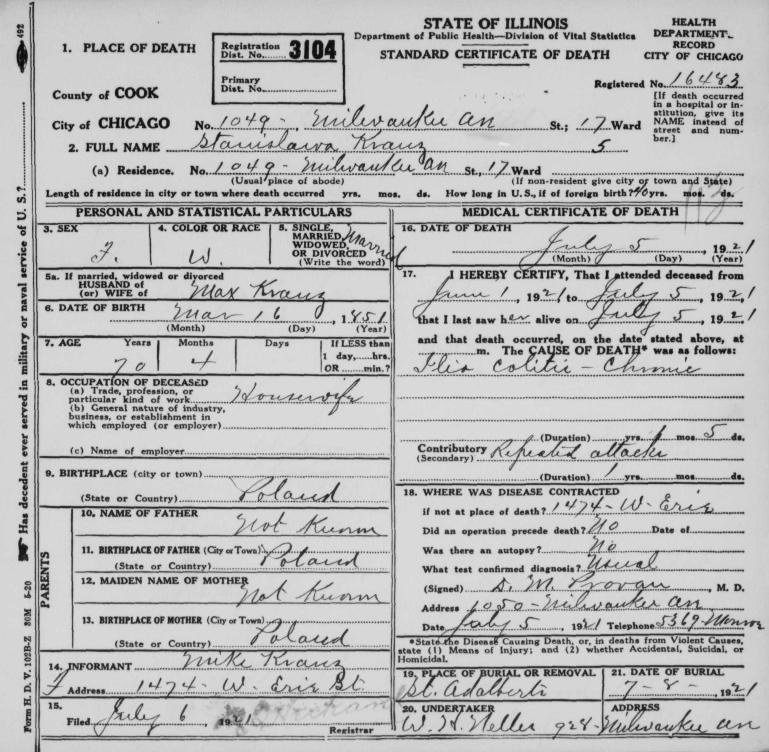 STATE OF ILLINOIS
Department of Public Health—Division of Vital Statistics
STANDARD CERTIFICATE OF DEATH
HEALTH
DEPARTMENT
RECORD
CITY OF CHICAGO
Registered No. 16483
[If death occurred
in a hospital or in-
stitution, give its
NAME instead of
street and num-
ber.]
1. PLACE OF DEATH
Registration
Dist. No. 3104
Primary
Dist. No.
County of COOK
City of CHICAGO No. 1049 - Milwaukee av St.; 17 Ward
2. FULL NAME Stanislawa Kranz 5
(a) Residence. No. 1049 - Milwaukee av St., 17 Ward
(Usual place of abode) (If non-resident give city or town and State)
Length of residence in city or town where death occurred yrs. mos. ds. How long in U.S., if of foreign birth? 40 yrs. mos. ds.
PERSONAL AND STATISTICAL PARTICULARS
3. SEX
F.
4. COLOR OR RACE
W.
5. SINGLE,
MARRIED,
WIDOWED,
OR DIVORCED
(Write the word)
Married
5a. If married, widowed or divorced
HUSBAND of
(or) WIFE of Max Kranz
6. DATE OF BIRTH Mar 16, 1851
(Month) (Day) (Year)
7. AGE Years Months Days If LESS than
1 day,....hrs.
OR ....min.?
70 4
8. OCCUPATION OF DECEASED
(a) Trade, profession, or
particular kind of work Housewife
(b) General nature of industry,
business, or establishment in
which employed (or employer)
(c) Name of employer
9. BIRTHPLACE (city or town)
(State or Country) Poland
PARENTS
10. NAME OF FATHER
Not Known
11. BIRTHPLACE OF FATHER (City or Town)
(State or Country) Poland
12. MAIDEN NAME OF MOTHER
Not Known
13. BIRTHPLACE OF MOTHER (City or Town)
(State or Country) Poland
14. INFORMANT Mike Kranz
Address 1474 - W. Erie St.
15.
Filed July 6, 1921
Registrar
MEDICAL CERTIFICATE OF DEATH
16. DATE OF DEATH
July 5, 1921
(Month) (Day) (Year)
17. I HEREBY CERTIFY, That I attended deceased from
June 1, 1921 to July 5, 1921
that I last saw her alive on July 5, 1921
and that death occurred, on the date stated above, at
m. The CAUSE OF DEATH* was as follows:
Ilio colitis - Chronic
(Duration) yrs. 1 mos. 5 ds.
Contributory Repeated attacks
(Secondary)
(Duration) 1 yrs. mos. ds.
18. WHERE WAS DISEASE CONTRACTED
if not at place of death? 1474 - W. Erie
Did an operation precede death? No Date of
Was there an autopsy? No
What test confirmed diagnosis? Usual
(Signed) D. M. Provan, M. D.
Address 1050 - Milwaukee av
Date July 5, 1921 Telephone 5369 - Monroe
*State the Disease Causing Death, or, in deaths from Violent Causes,
state (1) Means of Injury; and (2) whether Accidental, Suicidal, or
Homicidal.
19. PLACE OF BURIAL OR REMOVAL
St. Adalberts
21. DATE OF BURIAL
7 - 8 -, 1921
20. UNDERTAKER
W. H. Heller
ADDRESS
928 - Milwaukee av
492
Has decedent ever served in military or naval service of U. S.?
Form H. D. V. 102B-Z 20M 5-20